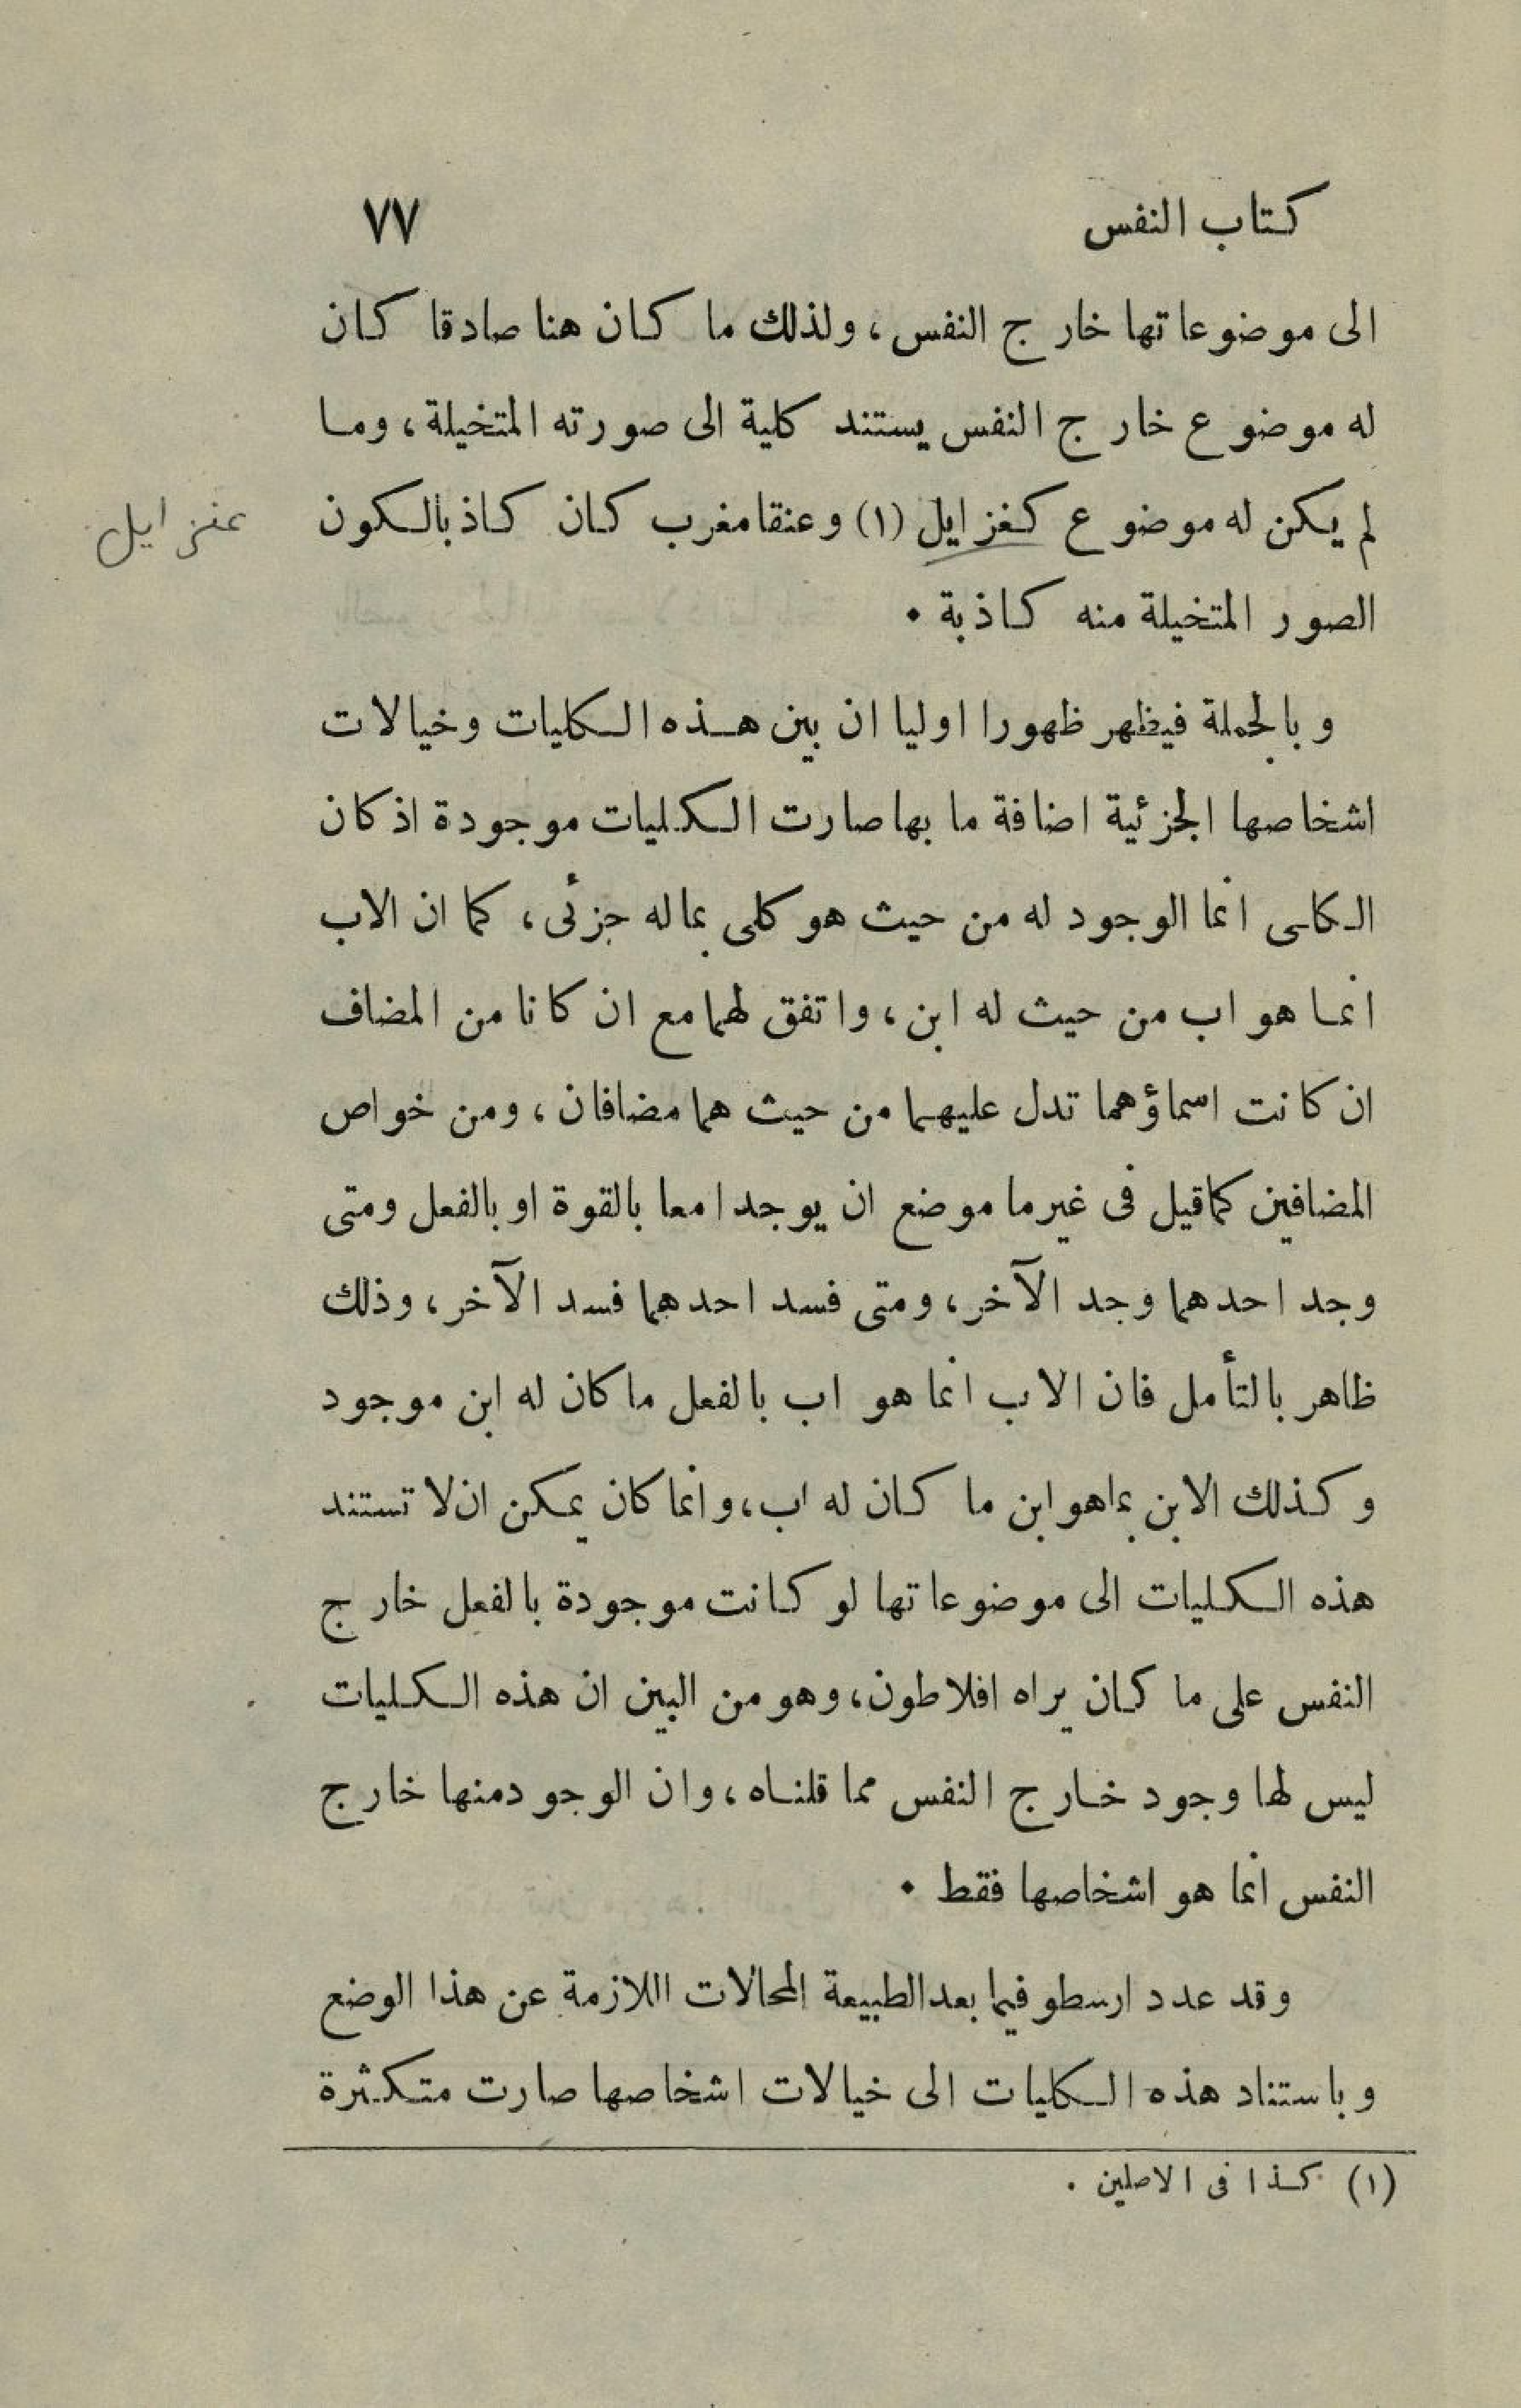 كتاب النفس ٧٧
الى موضوعاتها خارج النفس، ولذلك ما كان هنا صادقا كان
له موضوع خارج النفس يستند كلية الى صورته المتخيلة، وما
لم يكن له موضوع كغزايل (١) وعنقا مغرب كان كاذبا لكون
عنزايل
الصور المتخيلة منه كاذبة .
وبالجملة فيظهر ظهورا اوليا ان بين هذه الكليات وخيالات
اشخاصها الجزئية اضافة ما بها صارت الكليات موجودة اذ كان
الكلى انما الوجود له من حيث هو كلى بما له جزئى، كما ان الاب
انما هو اب من حيث له ابن، واتفق لهما مع ان كانا من المضاف
ان كانت اسماؤهما تدل عليهما من حيث هما مضافان، ومن خواص
المضافين كما قيل فى غير ما موضع ان يوجدا معا بالقوة او بالفعل ومتى
وجد احدهما وجد الآخر، ومتى فسد احدهما فسد الآخر، وذلك
ظاهر بالتأمل فان الاب انما هو اب بالفعل ما كان له ابن موجود
وكذلك الابن بما هو ابن ما كان له اب، وانما كان يمكن ان لا تستند
هذه الكليات الى موضوعاتها لو كانت موجودة بالفعل خارج
النفس على ما كان يراه افلاطون، وهو من البين ان هذه الكليات
ليس لها وجود خارج النفس مما قلناه، وان الوجود منها خارج
النفس انما هو اشخاصها فقط .
وقد عدد ارسطو فيما بعد الطبيعة المحالات اللازمة عن هذا الوضع
وباستناد هذه الكليات الى خيالات اشخاصها صارت متكثرة
(١) كذا فى الاصلين .